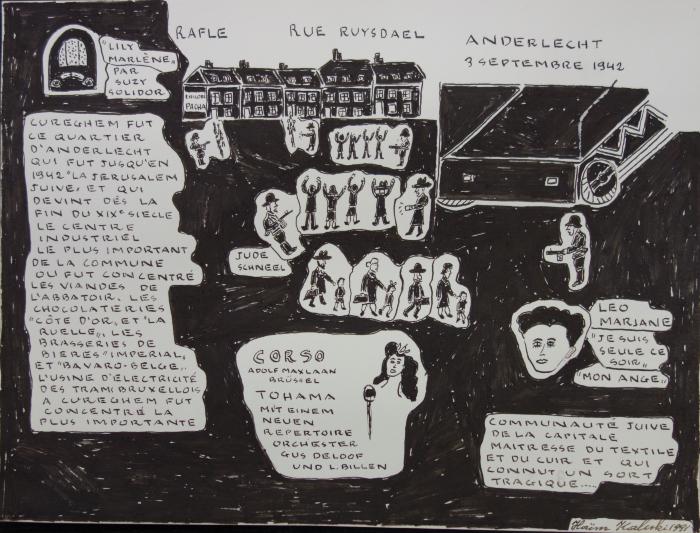 RAFLE RUE RUYSDAEL
ANDERLECHT
3 SEPTEMBRE 1942
"LILY
MARLÈNE"
PAR
SUZY
SOLIDOR
PACHA
CUREGHEM FUT
CE QUARTIER
D'ANDERLECHT
QUI FUT JUSQU'EN
1942 "LA JERUSALEM
JUIVE, ET QUI
DEVINT DÉS LA
FIN DU XIXe SIECLE
LE CENTRE
INDUSTRIEL
LE PLUS IMPORTANT
DE LA COMMUNE
OU FUT CONCENTRÉ
LES VIANDES DE
L'ABBATOIR, LES
CHOCOLATERIES
"CÔTE D'OR, ET "LA
RUELLE,, LES
BRASSERIES DE
BIERES "IMPERIAL,
ET "BAVARO-BELGE,,
L'USINE D'ELECTRICITÉ
DES TRAM BRUXELLOIS
A CUREGHEM FUT
CONCENTRÉ LA
PLUS IMPORTANTE
JUDE
SCHNEEL
CORSO
ADOLF MAXLAAN
BRÜSSEL
TOHAMA
MIT EINEM
NEUEN
REPERTOIRE
ORCHESTER
GUS DELOOF
UND L. BILLEN
LEO
MARJANE
"JE SUIS
SEULE CE
SOIR"
"MON ANGE"
COMMUNAUTÉ JUIVE
DE LA CAPITALE
MAITRESSE DU TEXTILE
ET DU CUIR ET QUI
CONNUT UN SORT
TRAGIQUE.....
Haïm Kaliski 1991